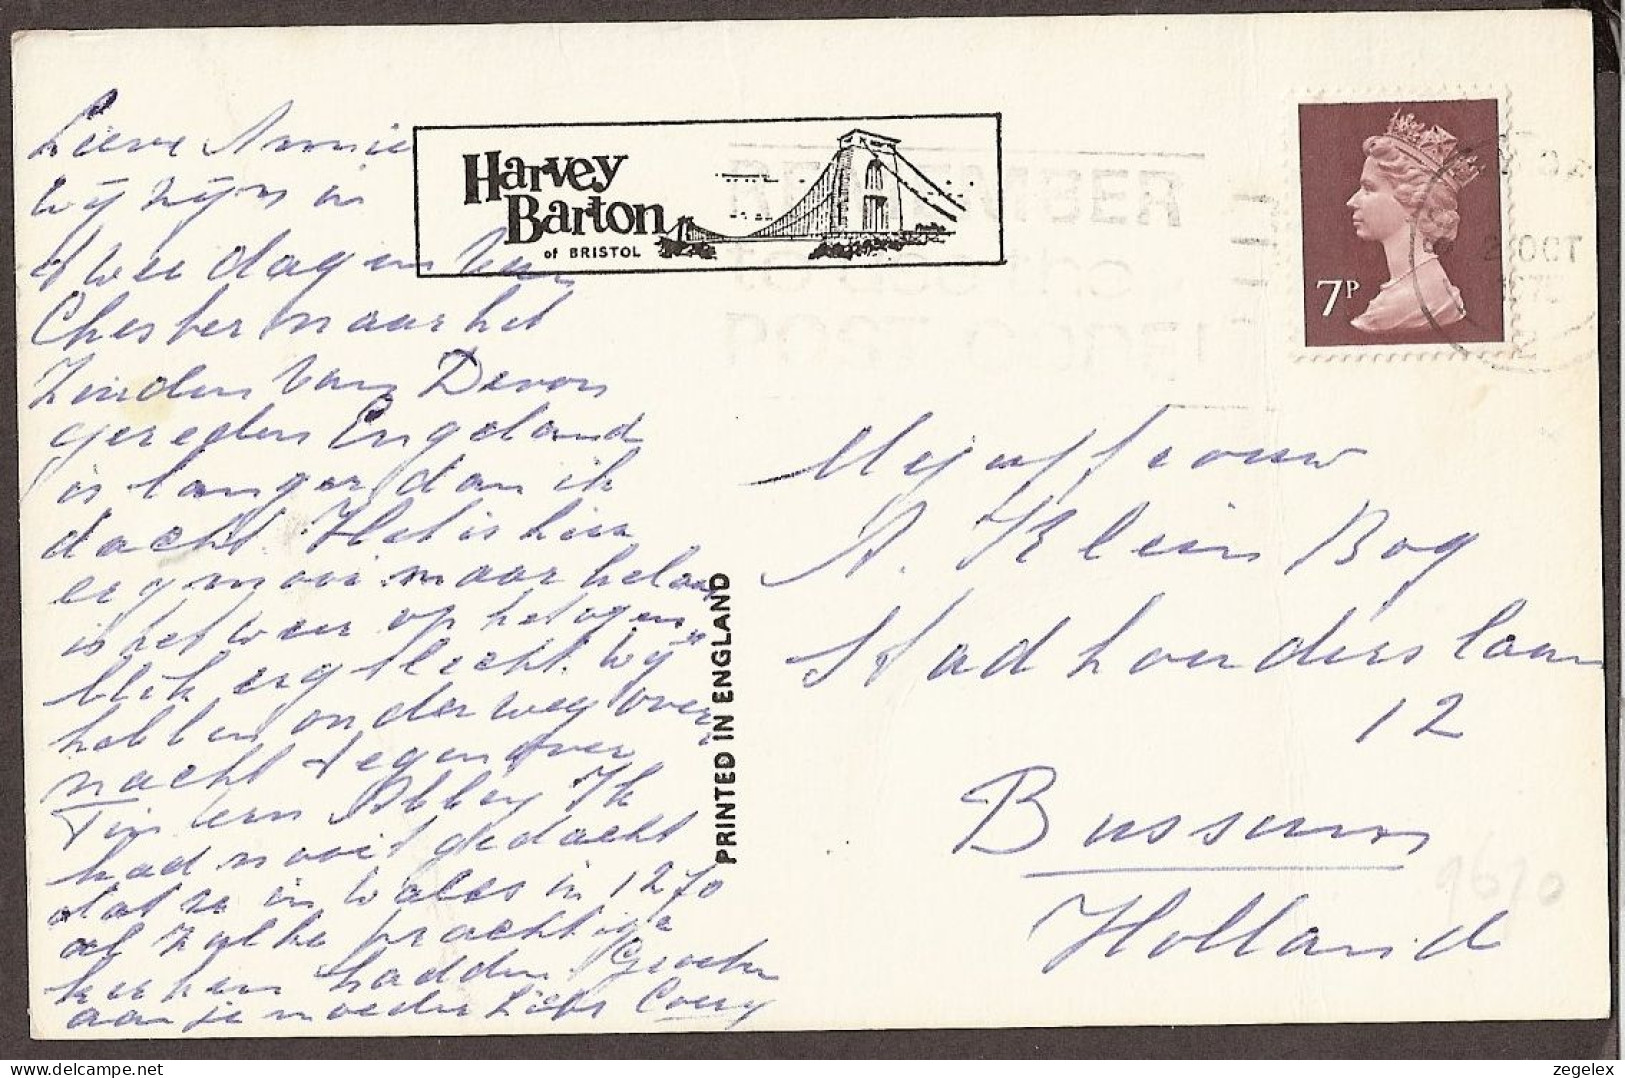 Lieve Annie
wij zijn in
twee dagen van
Chester naar het
Zuiden van Devon
gereden Engeland
is langer dan ik
dacht. Het is hier
erg mooi maar helaas
is het weer op het ogen„
blik erg slecht. Wij
hebben onderweg over„
nacht tegenover
Tintern Abbey Ik
had nooit gedacht
dat ze in Wales in 1270
al zulke prachtige
kerken hadden. Groeten
aan je moeder Liefs Corry
Harvey
Barton
of BRISTOL
PRINTED IN ENGLAND
REMEMBER
POST CODE
7P
2 OCT
Mejuffrouw
A. Klein Bog
Stadhouderslaan
12
Bussum
Holland
9670
zegelex.com